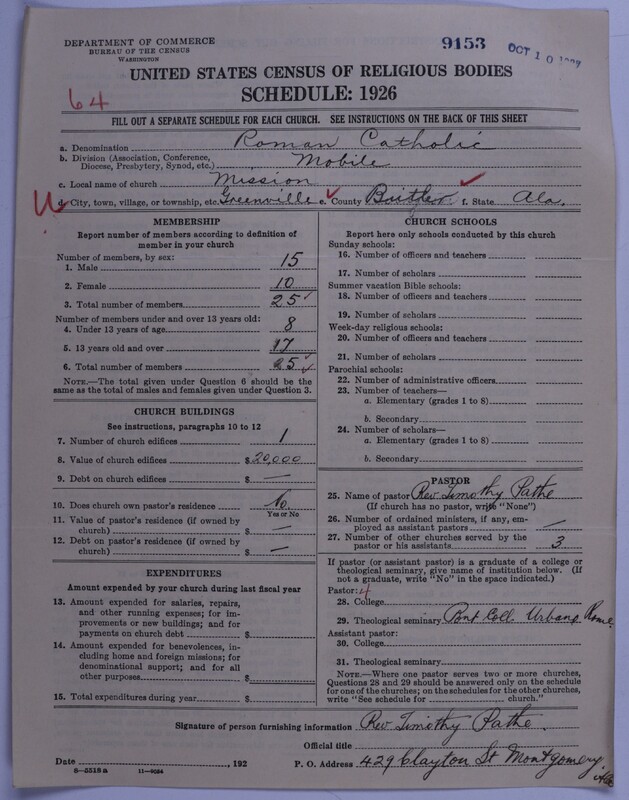 DEPARTMENT OF COMMERCE
BUREAU OF THE CENSUS
WASHINGTON
9153
OCT 10 1927
UNITED STATES CENSUS OF RELIGIOUS BODIES
SCHEDULE: 1926
64
FILL OUT A SEPARATE SCHEDULE FOR EACH CHURCH. SEE INSTRUCTIONS ON THE BACK OF THIS SHEET
a. Denomination Roman Catholic
b. Division (Association, Conference, Diocese, Presbytery, Synod, etc.) Mobile
c. Local name of church Mission
d. City, town, village, or township, etc. Greenville e. County Butler f. State Ala.
MEMBERSHIP
Report number of members according to definition of
member in your church
Number of members, by sex:
1. Male 15
2. Female 10
3. Total number of members 25
Number of members under and over 13 years old:
4. Under 13 years of age 8
5. 13 years old and over 17
6. Total number of members 25
NOTE.—The total given under Question 6 should be
same as the total of males and females given under Question 3.
CHURCH BUILDINGS
See instructions, paragraphs 10 to 12
7. Number of church edifices 1
8. Value of church edifices $ 20,000
9. Debt on church edifices $ —
10. Does church own pastor's residence No.
Yes or No
11. Value of pastor's residence (if owned by
church) $ —
12. Debt on pastor's residence (if owned by
church) $ —
EXPENDITURES
Amount expended by your church during last fiscal year
13. Amount expended for salaries, repairs,
and other running expenses; for im-
provements or new buildings; and for
payments on church debt $
14. Amount expended for benevolences, in-
cluding home and foreign missions; for
denominational support; and for all
other purposes $
15. Total expenditures during year $
CHURCH SCHOOLS
Report here only schools conducted by this church
Sunday schools:
16. Number of officers and teachers
17. Number of scholars
Summer vacation Bible schools:
18. Number of officers and teachers
19. Number of scholars
Week-day religious schools:
20. Number of officers and teachers
21. Number of scholars
Parochial schools:
22. Number of administrative officers
23. Number of teachers—
a. Elementary (grades 1 to 8)
b. Secondary
24. Number of scholars—
a. Elementary (grades 1 to 8)
b. Secondary
PASTOR
25. Name of pastor Rev Timothy Pathe
(If church has no pastor, write "None")
26. Number of ordained ministers, if any, em-
ployed as assistant pastors —
27. Number of other churches served by the
pastor or his assistants 3
If pastor (or assistant pastor) is a graduate of a college or
theological seminary, give name of institution below. (If
not a graduate, write "No" in the space indicated.)
Pastor:
28. College
29. Theological seminary Pont Coll. Urbano Rome.
Assistant pastor:
30. College
31. Theological seminary
NOTE.—Where one pastor serves two or more churches,
Questions 28 and 29 should be answered only on the schedule
for one of the churches; on the schedules for the other churches,
write "See schedule for church."
Signature of person furnishing information Rev Timothy Pathe.
Official title
Date , 192 P. O. Address 429 Clayton St Montgomery, Ala
8—2518a 11—9054